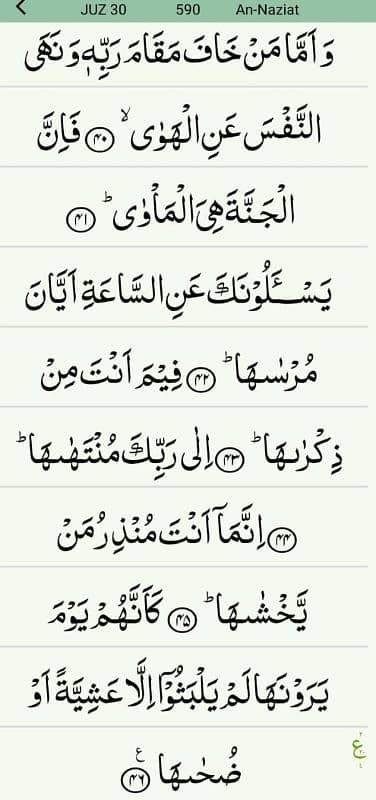 JUZ 30 590 An-Naziat
وَ اَمَّا مَنْ خَافَ مَقَامَ رَبِّهٖ وَ نَهَى
النَّفْسَ عَنِ الْهَوٰى ۙ ﴿۴۰﴾ فَاِنَّ
الْجَنَّةَ هِیَ الْمَاْوٰى ؕ ﴿۴۱﴾
یَسْـَٔلُوْنَكَ عَنِ السَّاعَةِ اَیَّانَ
مُرْسٰىهَا ؕ ﴿۴۲﴾ فِیْمَ اَنْتَ مِنْ
ذِكْرٰىهَا ؕ ﴿۴۳﴾ اِلٰى رَبِّكَ مُنْتَهٰىهَا ؕ
﴿۴۴﴾ اِنَّمَاۤ اَنْتَ مُنْذِرُ مَنْ
یَّخْشٰىهَا ؕ ﴿۴۵﴾ كَاَنَّهُمْ یَوْمَ
یَرَوْنَهَا لَمْ یَلْبَثُوْۤا اِلَّا عَشِیَّةً اَوْ
ضُحٰىهَا ﴿۴۶﴾ ع